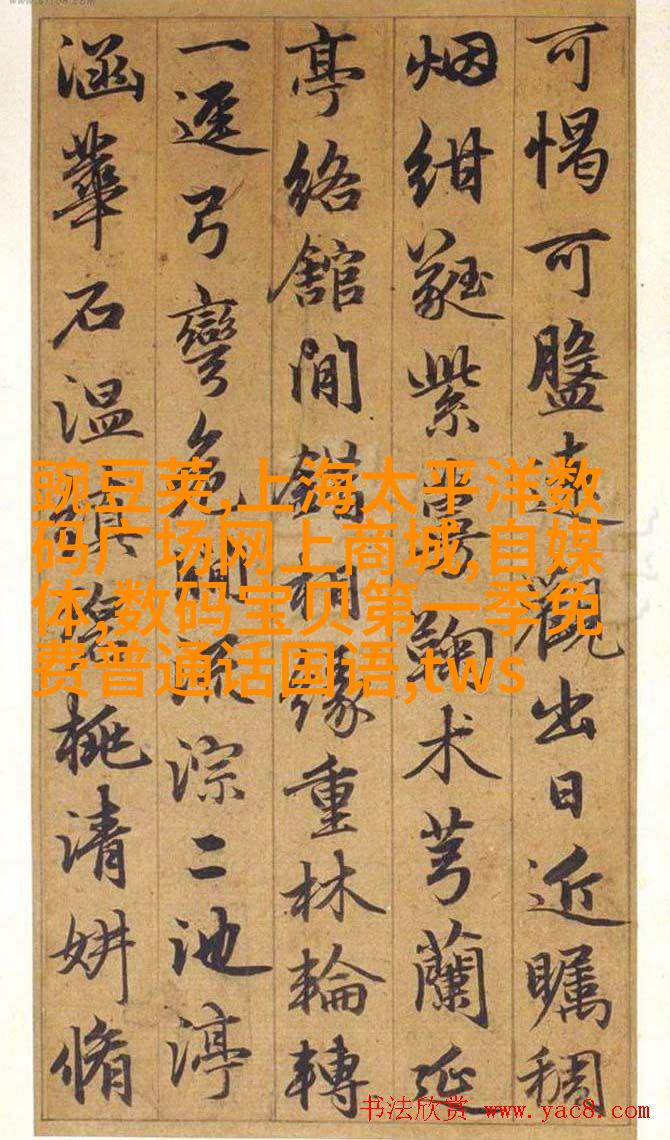 可愒可盥遠觀出日近矚稠
烟紺蕤紫萼鞠术芎蘭延
亭絡館間緣重林輪轉
一逕弓彎危流淙二池渟
涵華石温桃清妍脩
豌豆荚,上海太平洋数
码广场网上商城,自媒
体,数码宝贝第一季免
费普通话国语,tws
书法欣赏 www.yac8.com